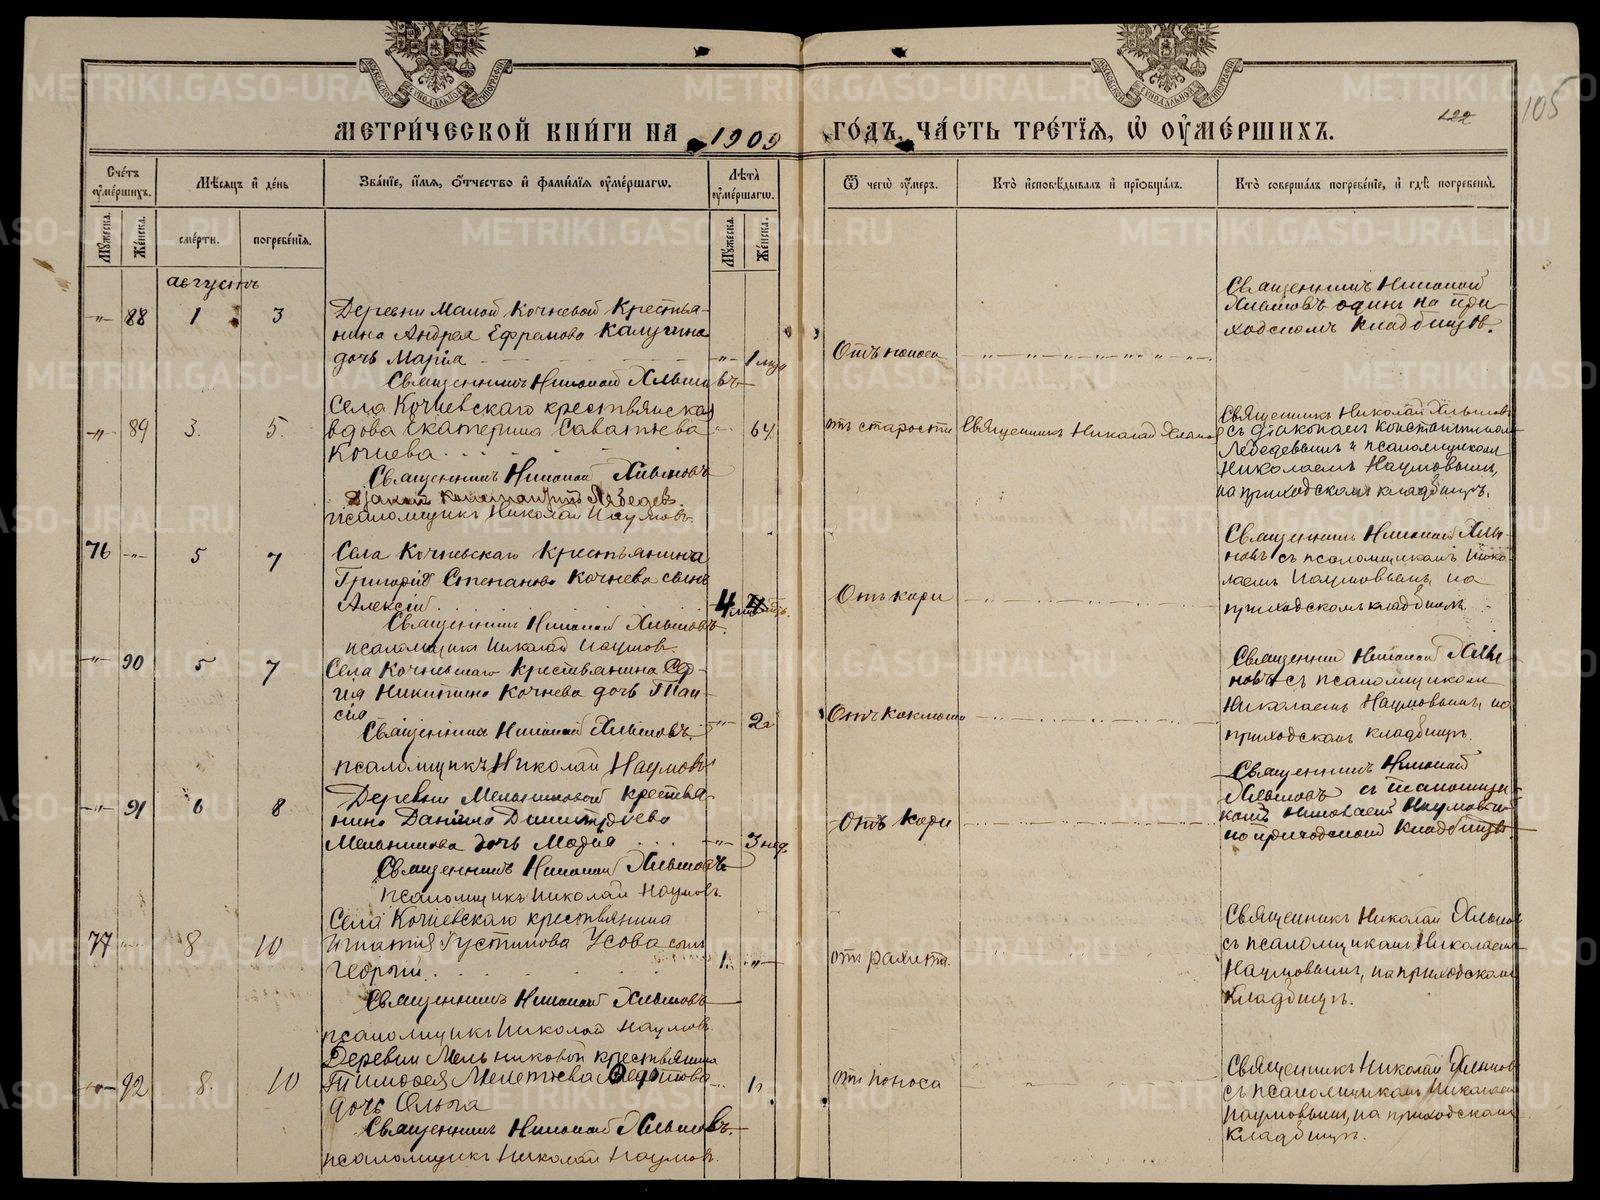 МЕТРИ́ЧЕСКОЙ КНИ́ГИ НА 1909 ГО́ДЪ, ЧА́СТЬ ТРЕ́ТІѦ, Ѡ҆ ОУ҆МЕ́РШИХЪ.
105
Сче́тъ оу҆ме́ршихъ.
Мѣ́сѧцъ и҆ де́нь
Зва́нїе, и҆́мѧ, ѻ҆́тчество и҆ фами́лїѧ оу҆ме́ршагѡ.
Лѣ́та оу҆ме́ршагѡ.
Ѿ чегѡ̀ оу҆́меръ.
Кто̀ и҆сповѣ́дывалъ и҆ прїѡбща́лъ.
Кто̀ соверша́лъ погребе́нїе, и҆ гдѣ̀ погребены̀.
Мꙋ́жеска.
Же́нска.
сме́рти.
погребе́нїѧ.
Мꙋ́жеска.
Же́нска.
августъ
88 1 3
Деревни Малой Кочневой Крестья-
нина Андрея Ефремова Калугина
дочь Марія
Священникъ Николай Хлыновъ
Отъ поноса
Священникъ Николай
Хлыновъ один на при
ходскомъ кладбищѣ.
89 3. 5.
Села Кочневскаго крестьянская
вдова Екатерина Саватиева
Кочнева
64
Священникъ Николай Хлыновъ
Діаконъ Константинъ Лебедевъ
псаломщикъ Николай Наумовъ.
отъ старости
Священникъ Николай Хлыновъ
Священникъ Николай Хлыновъ
съ діакономъ Константиномъ
Лебедевымъ и псаломщикомъ
Николаемъ Наумовымъ,
на приходскомъ кладбищѣ.
76 5 7
Села Кочневскаго Крестьянина
Григорія Степанова Кочнева сынъ
Алексій
4
Священникъ Николай Хлыновъ.
псаломщикъ Николай Наумовъ.
Отъ кори
Священникъ Николай Хлы-
новъ съ псаломщикомъ Нико-
лаемъ Наумовымъ, на
приходскомъ кладбищѣ.
90 5 7
Села Кочневскаго Крестьянина Сер-
гія Никитина Кочнева дочь Таи-
сія
2
Священникъ Николай Хлыновъ.
псаломщикъ Николай Наумовъ
Отъ коклюша
Священник Николай Хлы
новъ съ псаломщикомъ
Николаемъ Наумовымъ, на
приходскомъ кладбищѣ.
91 6 8
Деревни Мельниковой крестья-
нина Даніила Димитріева
Мельникова дочь Марія
3 нед.
Священникъ Николай Хлыновъ
псаломщикъ Николай Наумовъ
Отъ кори
Священникъ Николай
Хлыновъ съ псаломщи-
комъ Николаемъ Наумовым
на приходской кладбищѣ
77 8 10
Села Кочневскаго крестьянина
Игнатія Густинова Усова сынъ
Георгій
1.
Священникъ Николай Хлыновъ
псаломщикъ Николай Наумовъ.
отъ рахита.
Священникъ Николай Хлыновъ
съ псаломщикомъ Николаемъ
Наумовымъ, на приходскомъ
кладбищѣ.
92 8. 10
Деревни Мельниковой крестьянина
Тимофея Мелетіева Федотова
дочь Ольга
Священникъ Николай Хлыновъ.
псаломщикъ Николай Наумовъ.
отъ поноса
Священникъ Николай Хлыновъ
съ псаломщикомъ Николаемъ
Наумовымъ, на приходскомъ
кладбищѣ.
METRIKI.GASO-URAL.RU